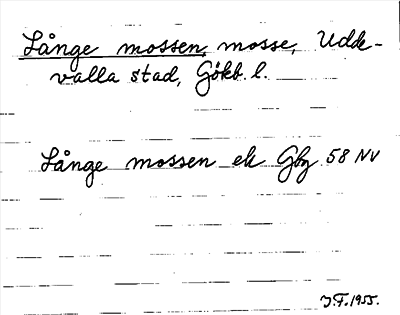 Långe mossen, mosse, Udde-
valla stad, Gökb. l.
Långe mossen ek Gbg 58 NV
J.F. 1955.